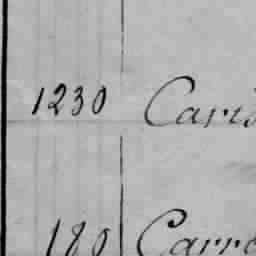 1230 Caris
180 Carre